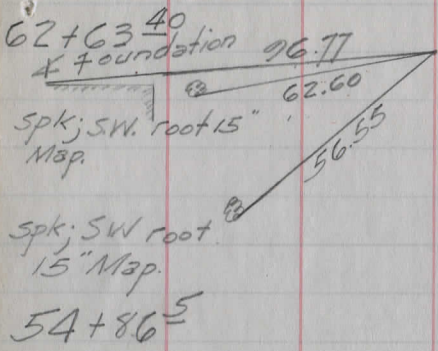 62+63 40
X Foundation 96.77
62.60
Spk; S.W. root 15"
Map.
56.55
Spk; SW root
15" Map.
54+86 5